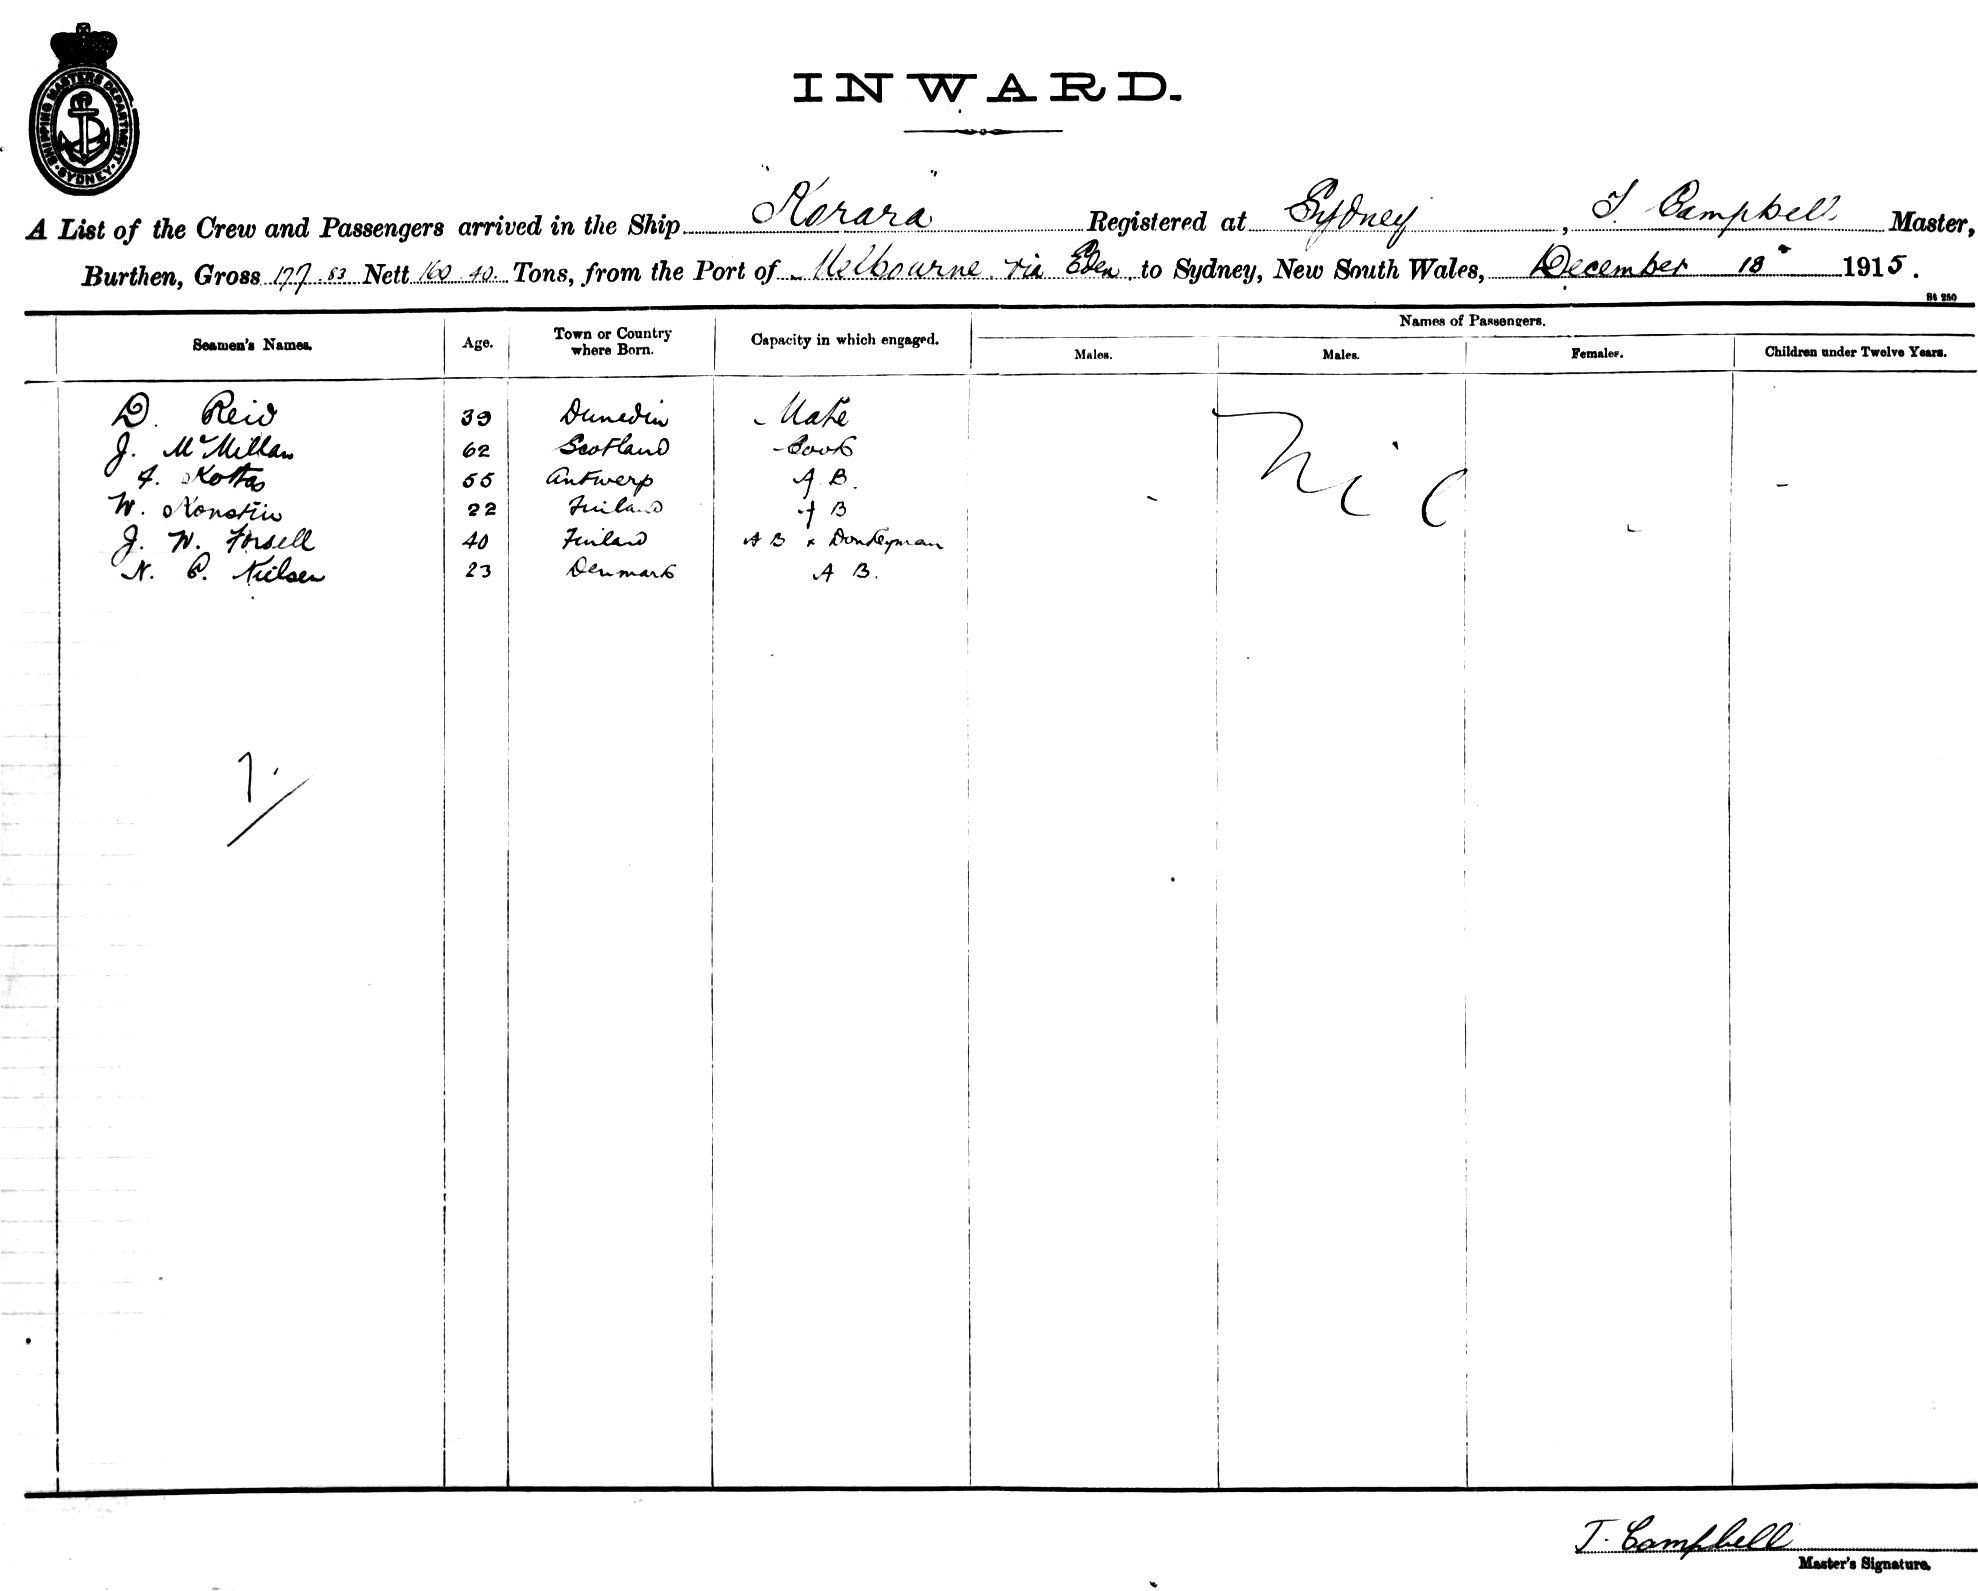 SHIPPING MASTERS DEPARTMENT · SYDNEY ·
INWARD.
A List of the Crew and Passengers arrived in the Ship "Korara" Registered at Sydney, T. Campbell Master,
Burthen, Gross 177.83 Nett 160.40. Tons, from the Port of Melbourne via Eden. to Sydney, New South Wales, December 18 1915.
St 250
Seamen's Names. Age. Town or Country where Born. Capacity in which engaged. Names of Passengers.
Males. Males. Females. Children under Twelve Years.
D. Reid 39 Dunedin Mate
J. McMillan 62 Scotland Cook
55 Antwerp A B.
W. 22 Finland A B
J. W. Forsell 40 Finland A B & Donkeyman
N. P. Nielsen 23 Denmark A B.
Nil
7.
T. Campbell
Master's Signature.